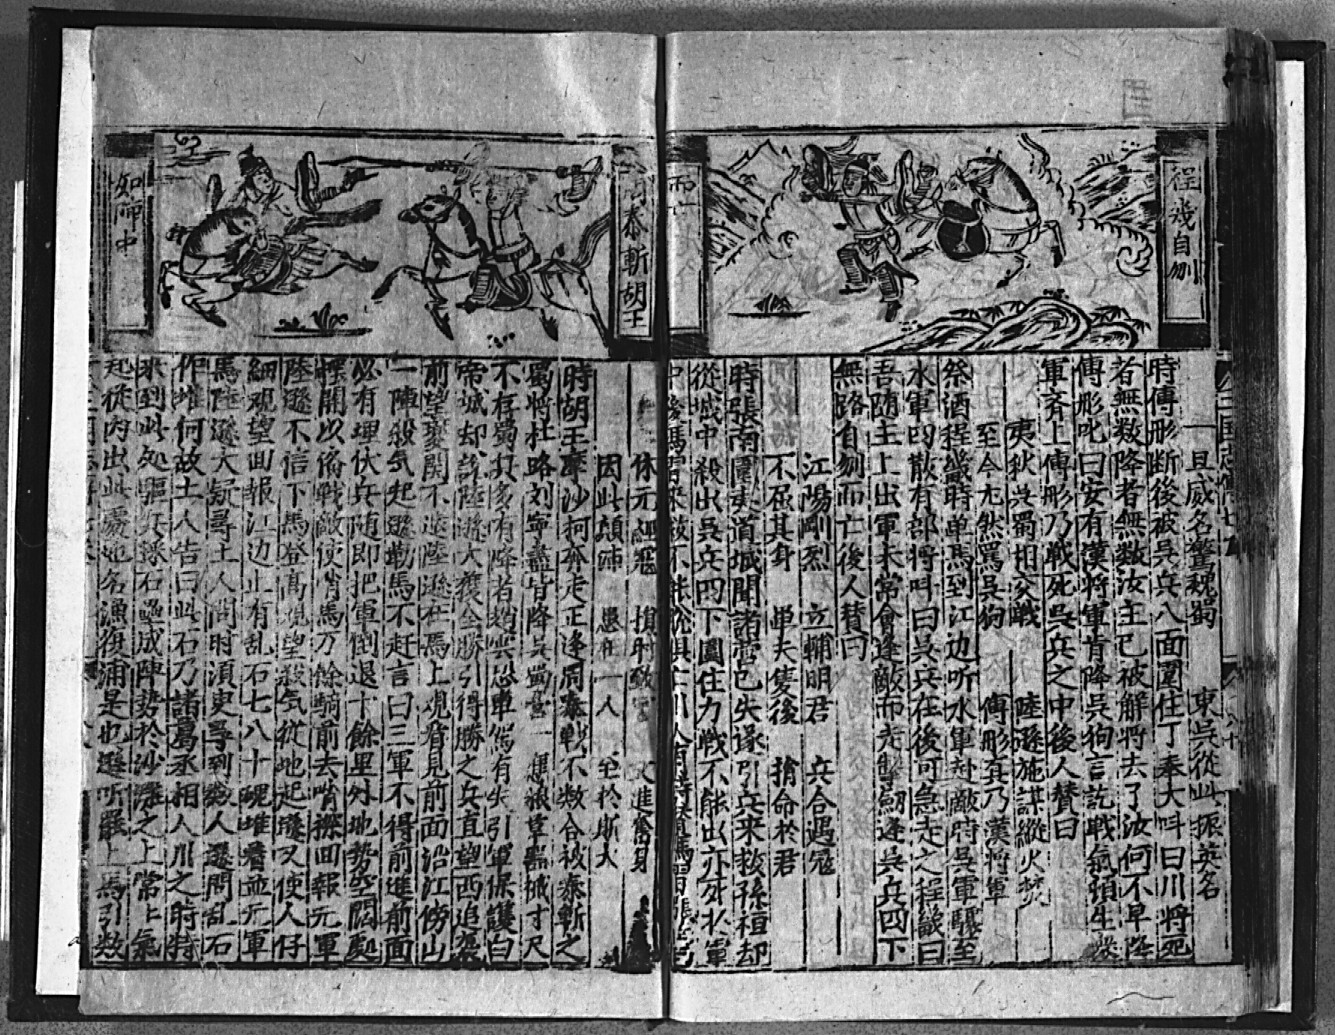 程畿自刎
而亡
周泰斬胡王
如沛中
三国志傳七
一旦威名驚魏蜀 東吳從此振英名
時傅彤断後被吳兵八面圍住丁奉大呌曰川將死
者無数降者無数汝主已被觧將去了汝何不早降
傅彤叱曰安有漢將軍肯降吳狗言訖戰氣預生
軍齐上傅彤乃戰死吳兵之中後人賛曰
夷狄吳蜀相交戰 陸遜施謀縱火焚
至今尤然罵吳狗 傅彤真乃漢將軍
祭酒程畿時单馬到江边听水軍赴敵時吳軍驟至
水軍四散有部将呌曰吳兵在後可急走之程畿曰
吾随主上出軍未常會逢敵而走掣劒逢吳兵四下
無路自刎而亡後人賛曰
江陽剛烈 立輔明君 兵合遇寇
不屈其身 单夫隻後 捨命於君
時張南圍夷道城聞諸营已失遂引兵来救孫桓却
從城中殺出吳兵四下圍住力戰不能出亦死於軍
中後馮習来救不能
休元 寇 損 文進奮身
因此顛沛 愚在一人 至於斯大
時胡王摩沙柯奔走正逢周泰戰不数合被泰斬之
蜀将杜路刘寧盡皆降吳蜀 一應粮草噐械寸尺
不存蜀兵多有降者趙雲恐車駕有失引軍保護白
帝城却說陸遜大獲全勝引得勝之兵直望西追襲
前望夔関不遠陸遜在馬上观看見前面沿江傍山
一陣殺气起遜勒馬不赶言曰三軍不得前進前面
必有埋伏兵随即把軍倒退十餘里外地势空闊處
摆開以俻戰敵使哨馬万餘騎前去哨探回報无軍
陸遜不信下馬登高覌望殺气從地起遜又使人仔
細观望回報江边止有乱石七八十磈堆着並元軍
馬陸遜大疑尋土人問时湏臾尋到数人遜問乱石
作堆何故土人告曰此石乃諸葛丞相入川之時特
来到此処驅兵 石壘成陣势於沙灘之上常上氣
起從内出此處地名漁復浦是也遜听罷上馬引数